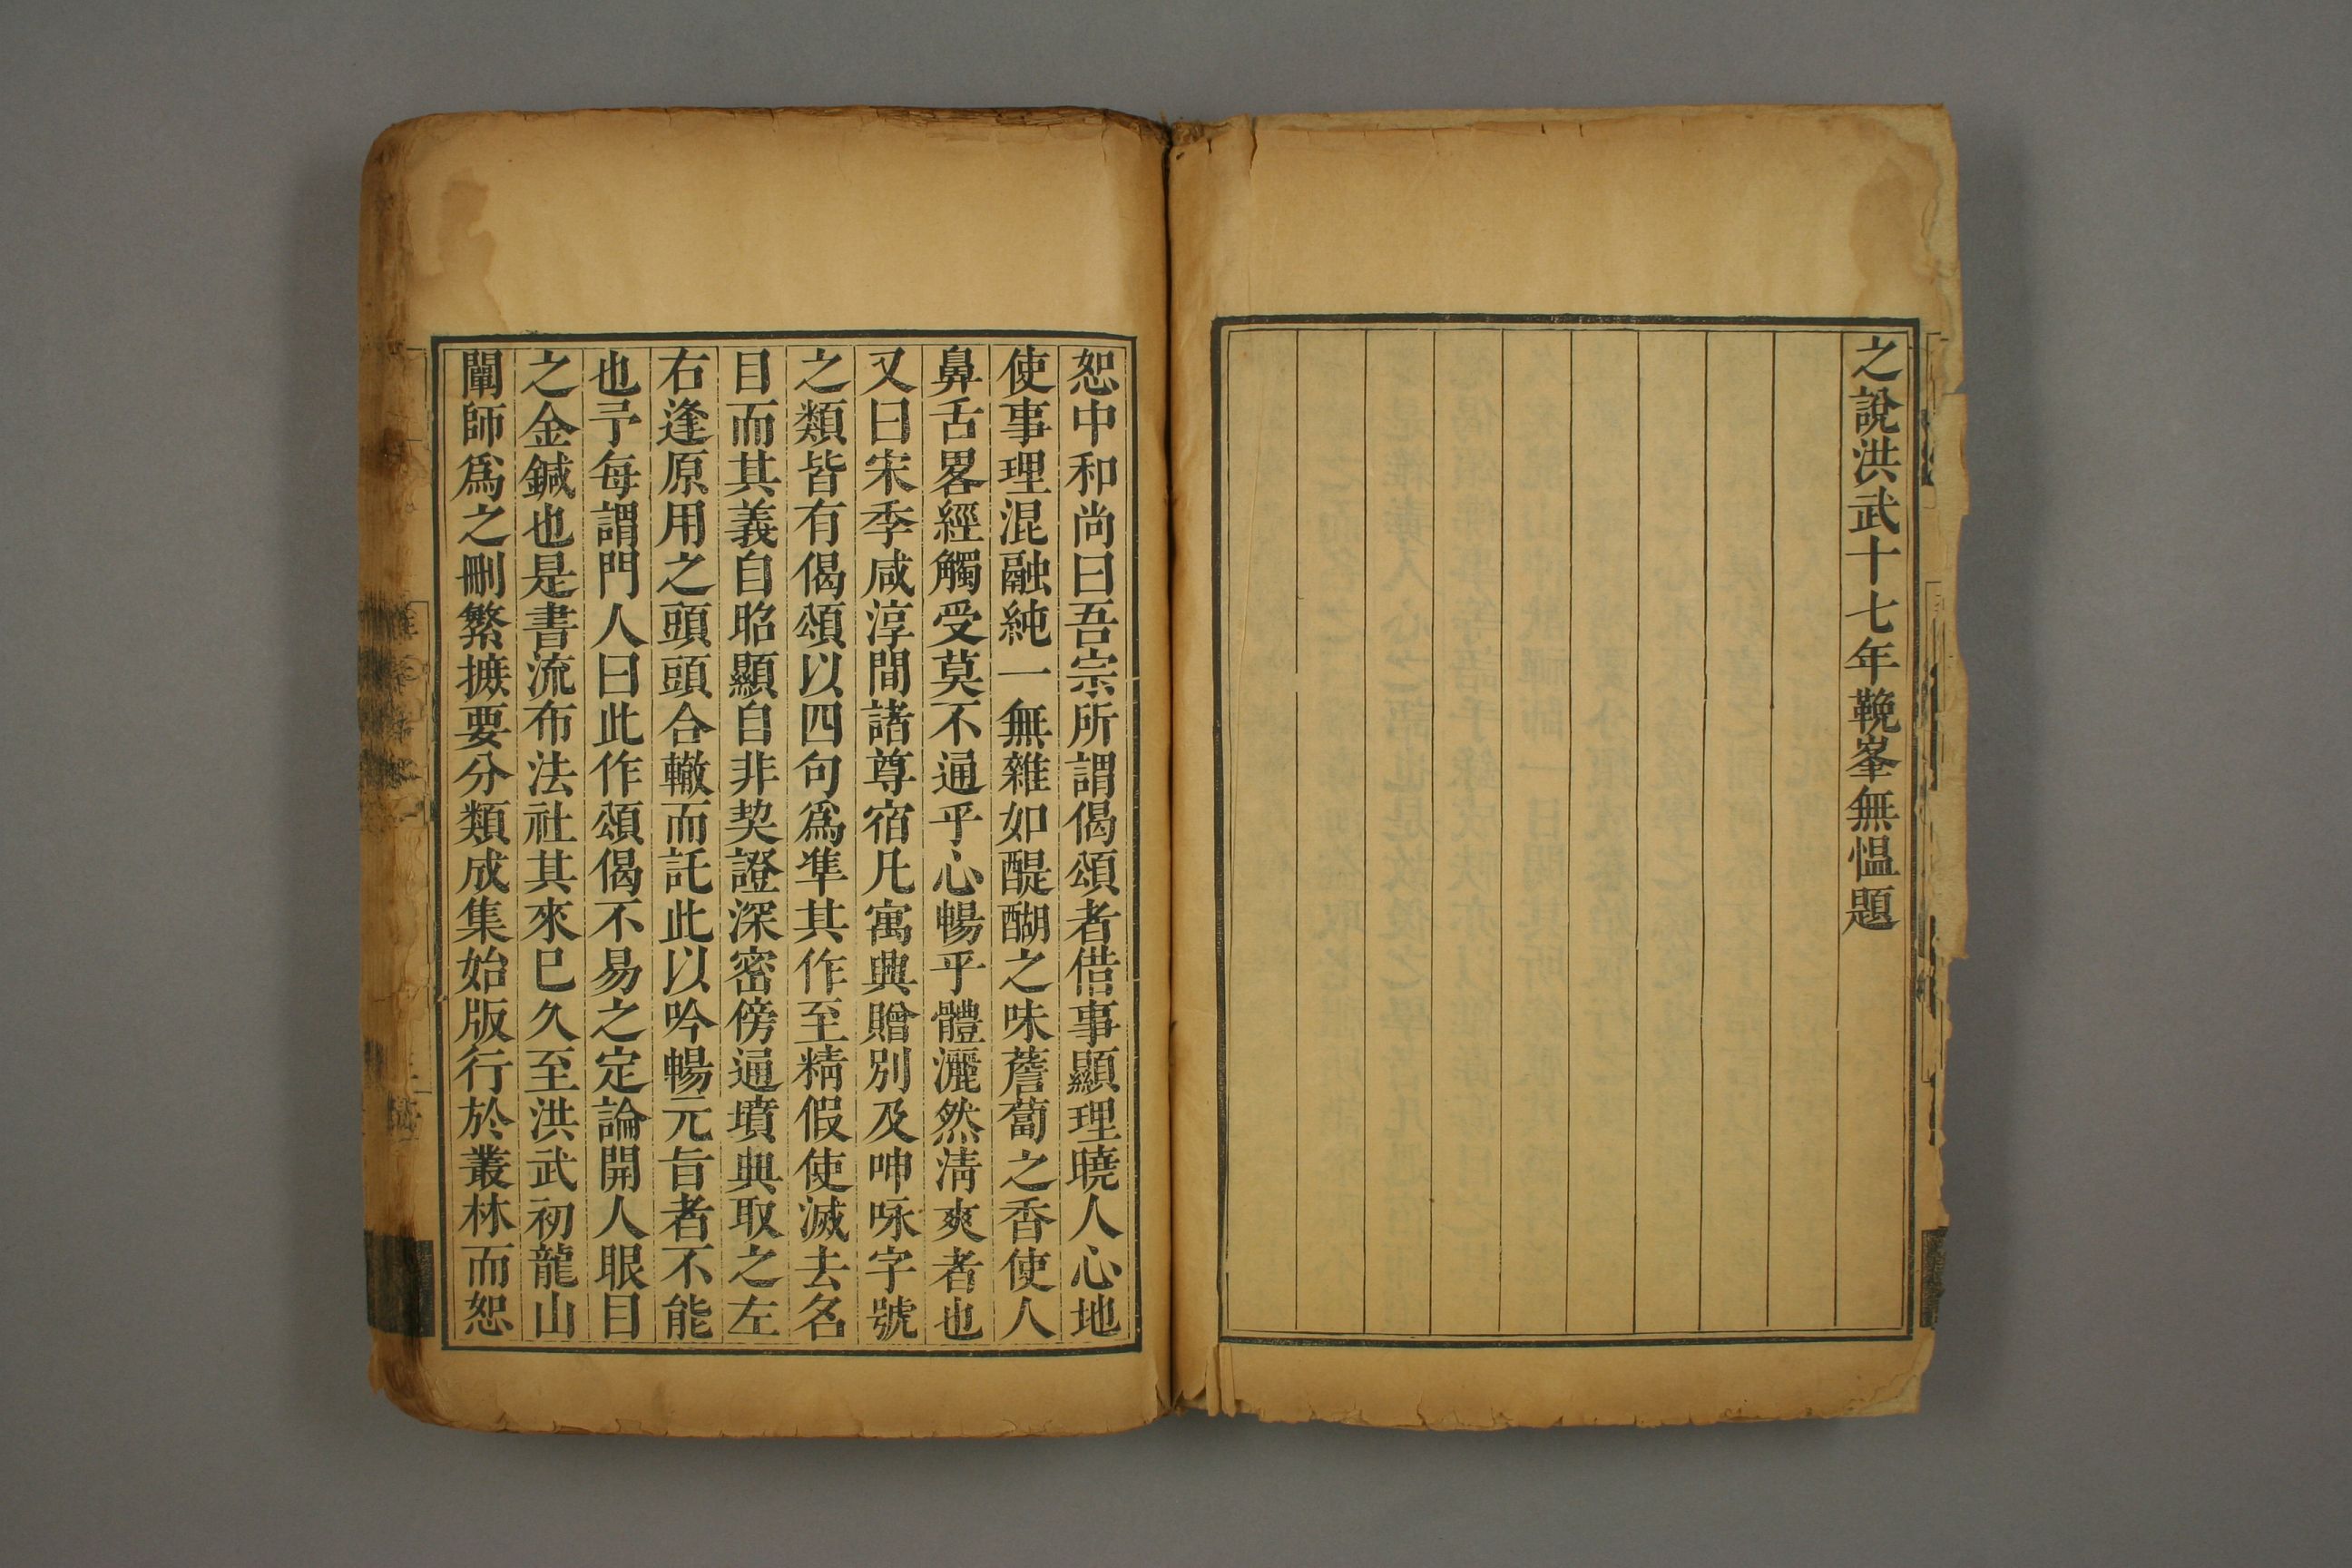 之說洪武十七年鞔峯無愠題
恕中和尚曰吾宗所謂偈頌者借事顯理曉人心地
使事理混融純一無雜如醍醐之味薝蔔之香使人
鼻舌畧經觸受莫不通乎心暢乎體灑然淸爽者也
又曰宋季咸淳間諸尊宿凡寓興贈別及呻咏字號
之類皆有偈頌以四句爲準其作至精假使滅去名
目而其義自昭顯自非契證深密傍通墳典取之左
右逢原用之頭頭合轍而託此以吟暢元旨者不能
也予每謂門人曰此作頌偈不易之定論開人眼目
之金鍼也是書流布法社其來巳久至洪武初龍山
闡師爲之刪繁摭要分類成集始版行於叢林而恕